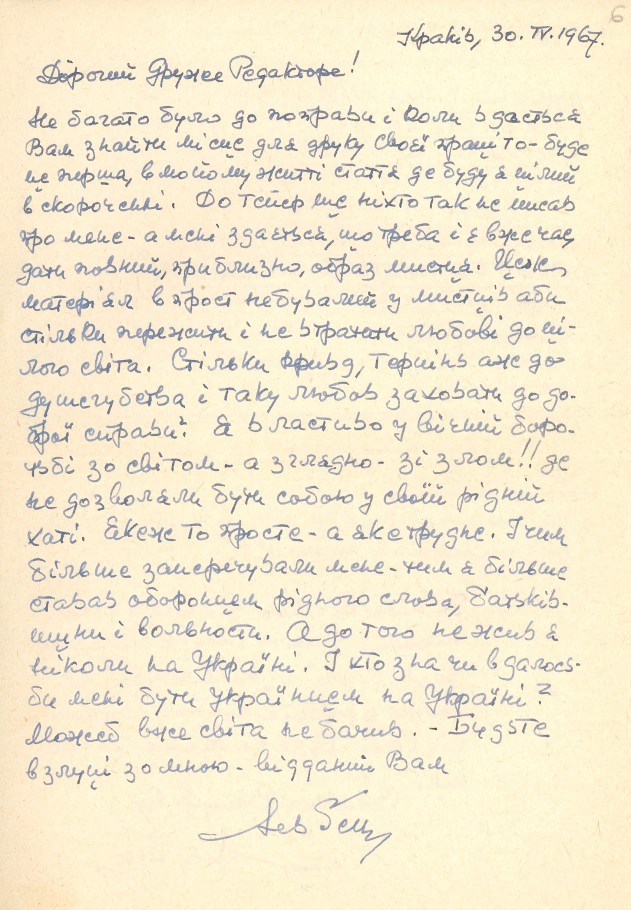 6
Краків, 30. IV. 1967.
Дорогий Друже Редакторе!
Не багато було до поправи і коли вдасться
Вам знайти місце для друку своєї праці то - буде
це перша, в мойому житті стаття де буду я цілий
в скороченні. До тепер ще ніхто так не писав
про мене - а мені здається, що треба і є вже час,
дати повний, приблизно, образ мистця.
матеріял в прост небувалий у мистців аби
стільки пережити і не втратити любові до ці-
лого світа. Стільки кривд, терпінь аж до
душегубства і таку любов заховати до до-
брої справи? Я властиво у вічній боро-
тьбі зо світом - а зглядно - зі злом!! де
не дозволяли бути собою у своїй рідній
хаті. Якеж то просте - а яке трудне. І чим
більше заперечували мене - тим я більше
ставав оборонцем рідного слова, батьків-
щини і вольности. А до того не жив я
ніколи на Україні. І хто зна чи вдалось-
би мені бути українцем на Україні?
Можеб вже світа не бачив. - Будьте
в злуці зо мною - відданий Вам
Лев Ґец